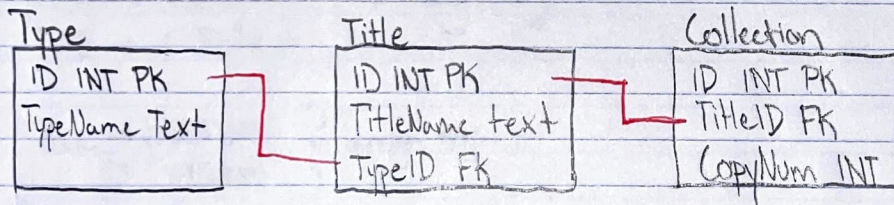 Type
ID INT PK
TypeName Text
Title
ID INT PK
TitleName text
TypeID FK
Collection
ID INT PK
TitleID FK
CopyNum INT